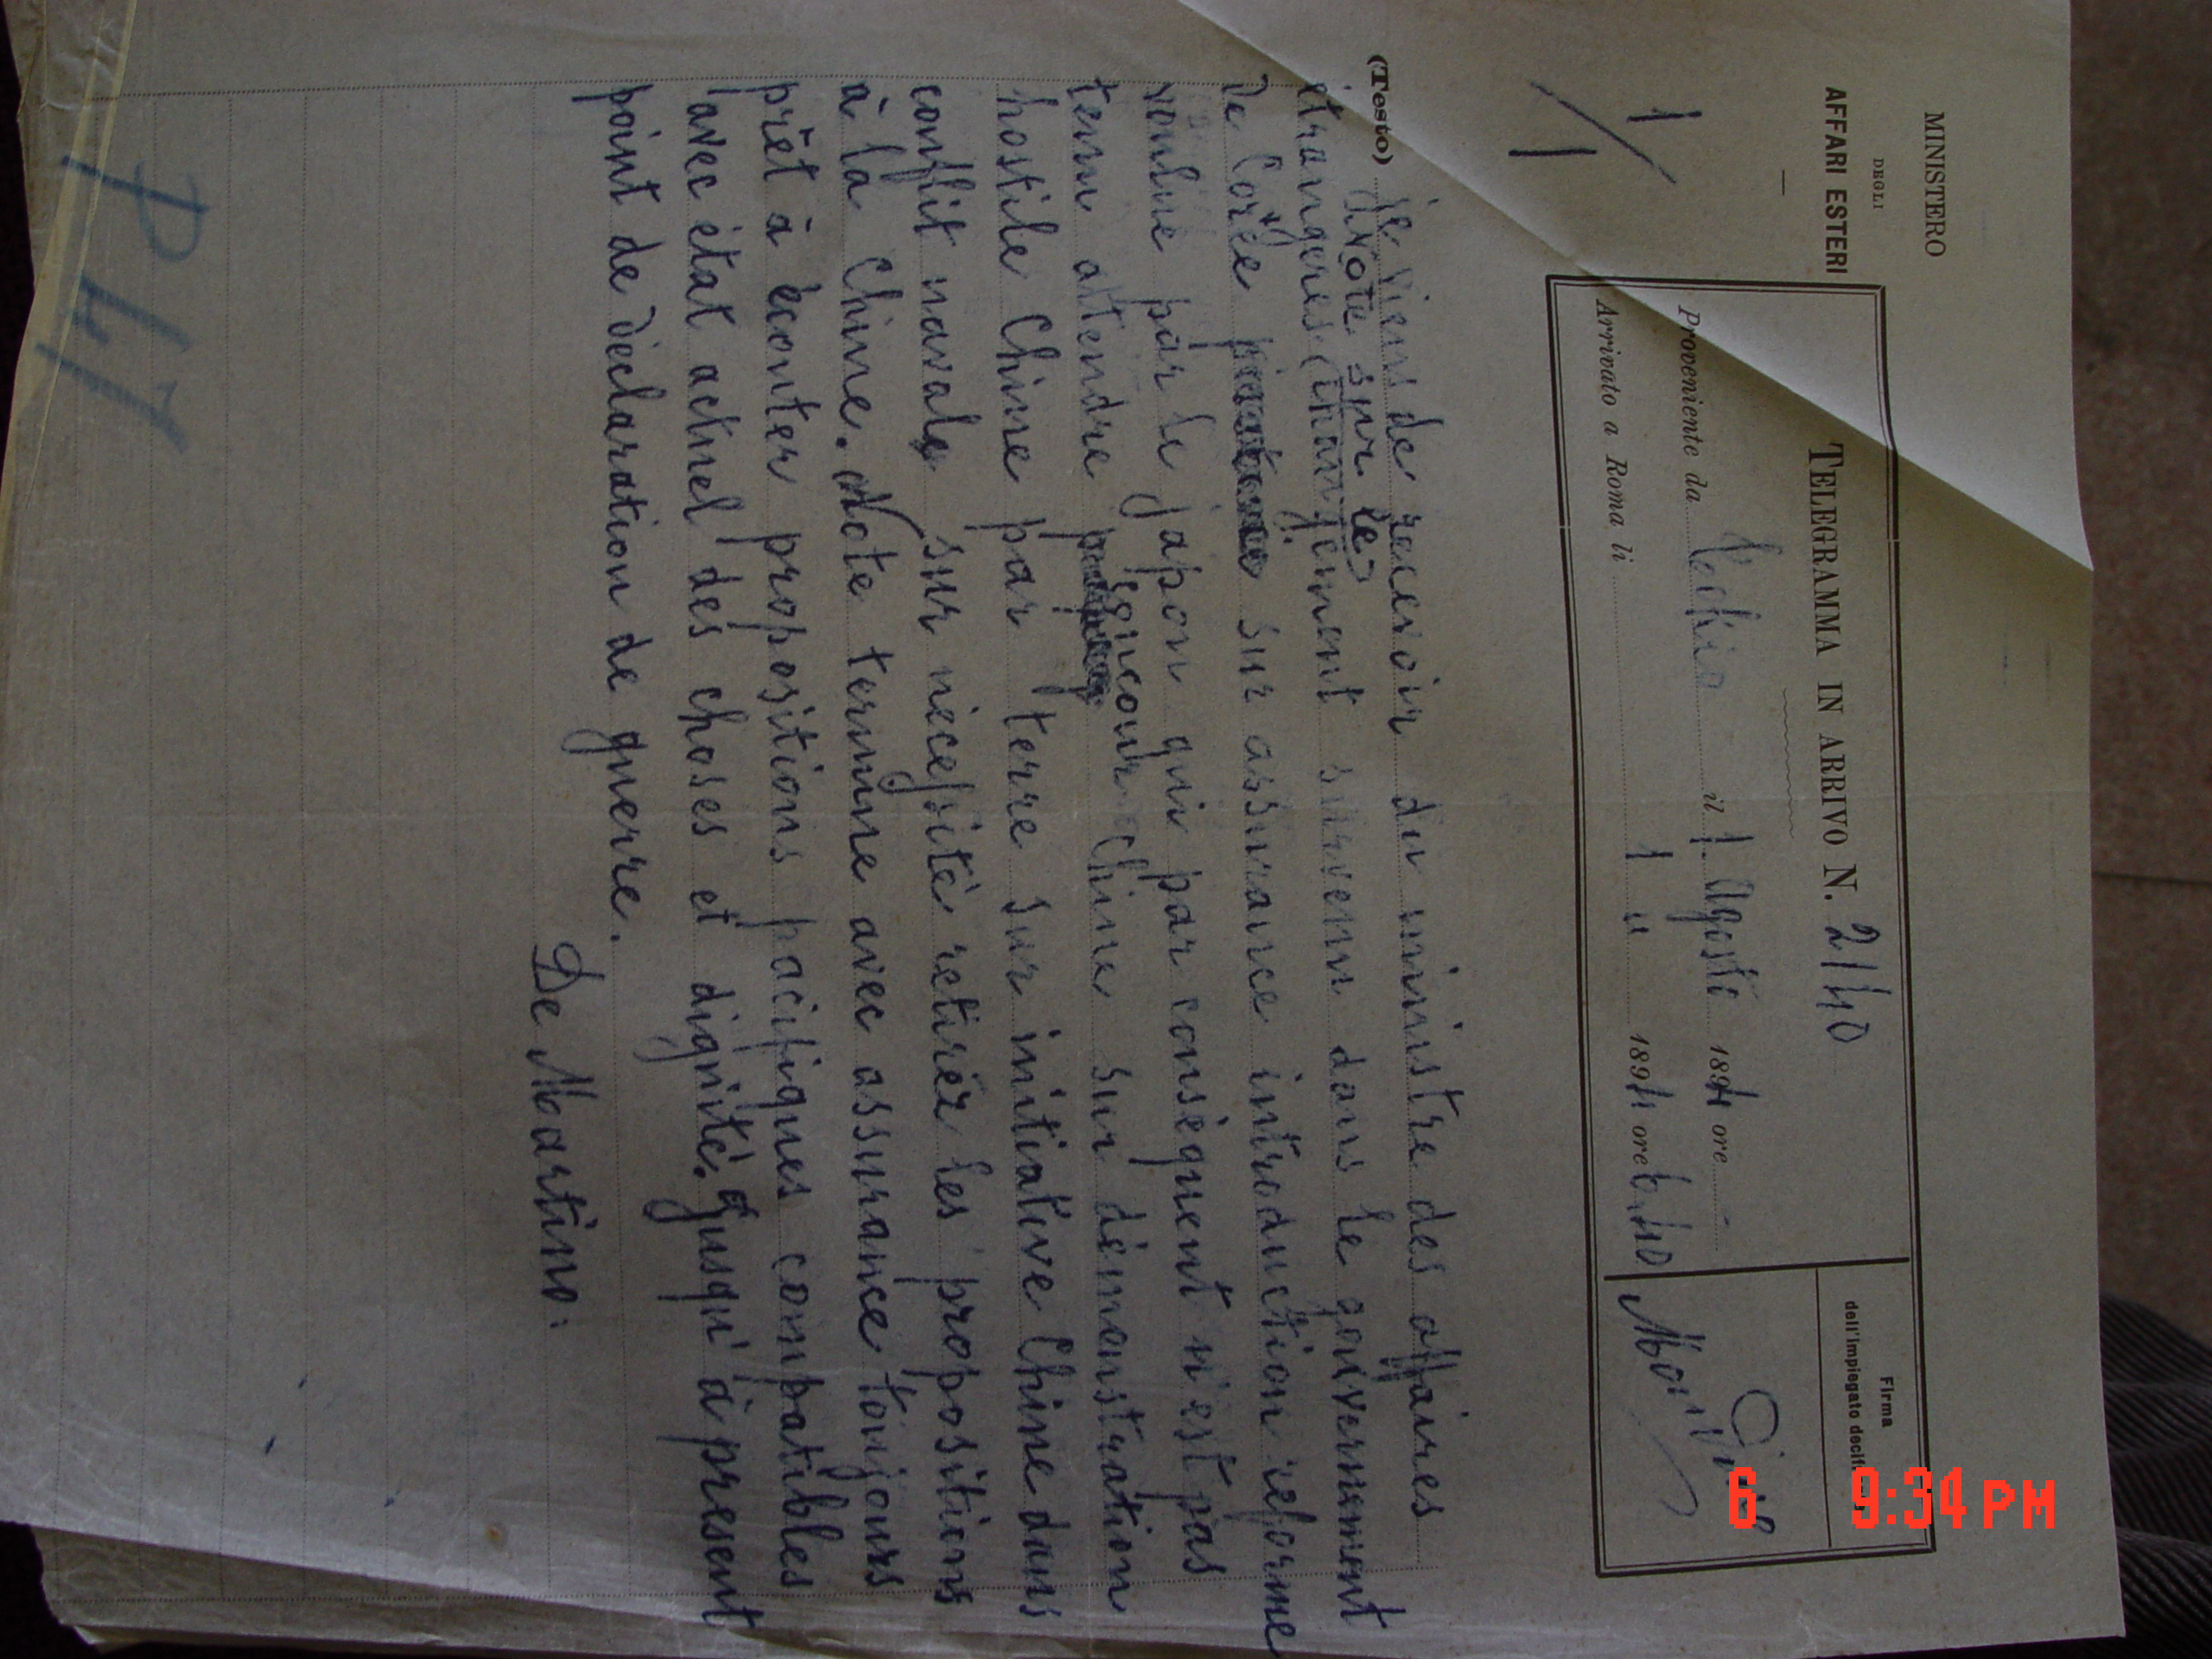 MINISTERO
DEGLI
AFFARI ESTERI
TELEGRAMMA IN ARRIVO N. 2140
Proveniente da Tockio il 1. Agosto 1894 ore -
Arrivato a Roma li 1 " 1894 ore 6,40
Firma
dell'impiegato
(Testo) Je viens de recevoir du ministre des affaires
note sur le
étrangeres changement survenu dans le gouvernement
de Corée sur assurance introduction reforme
voulue par le japon qui par conséquent n'est pas
concour
tenu attendre Chine sur démonstration
hostile Chine par terre sur initiative Chine dans
conflit navale sur nécessité retirér les propositions
à la Chine. Note termine avec assurance toujours
prêt à écouter propositions pacifiques compatibles
avec état actuel des choses et dignité. Jusqu'à present
point de déclaration de guerre.
De Martino.
6 9:34 PM